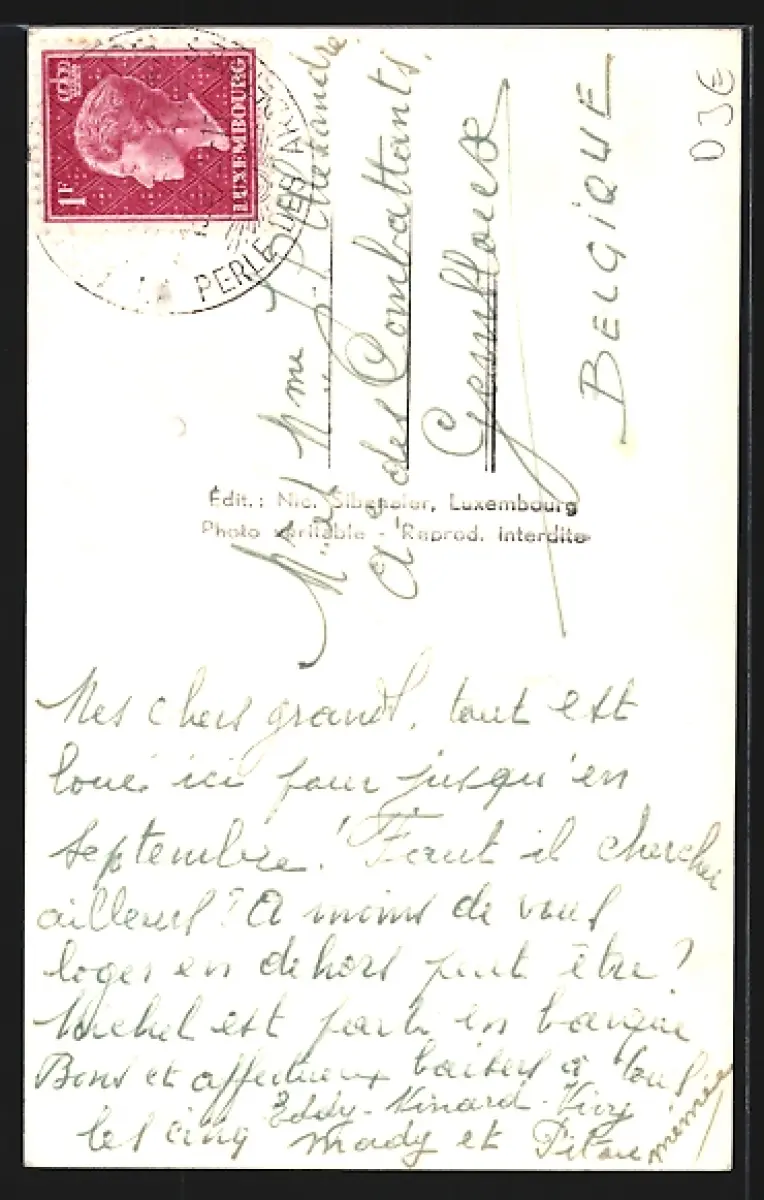 1F
LUXEMBOURG
PERLE DES
M. et Mme Alexandre
des Combattants.
Gembloux
BELGIQUE
D3E
Édit.: Nic. Sibenaler, Luxembourg
Photo véritable - Reprod. interdite
Mes chers grands, tout est
loué ici pour jusqu'en
septembre! Faut il chercher
ailleurs? A moins de vous
loger en dehors peut être?
Michel est parti en barque
Bons et affectueux baisers à tous
les cinq Eddy - - 
Mady et mémée